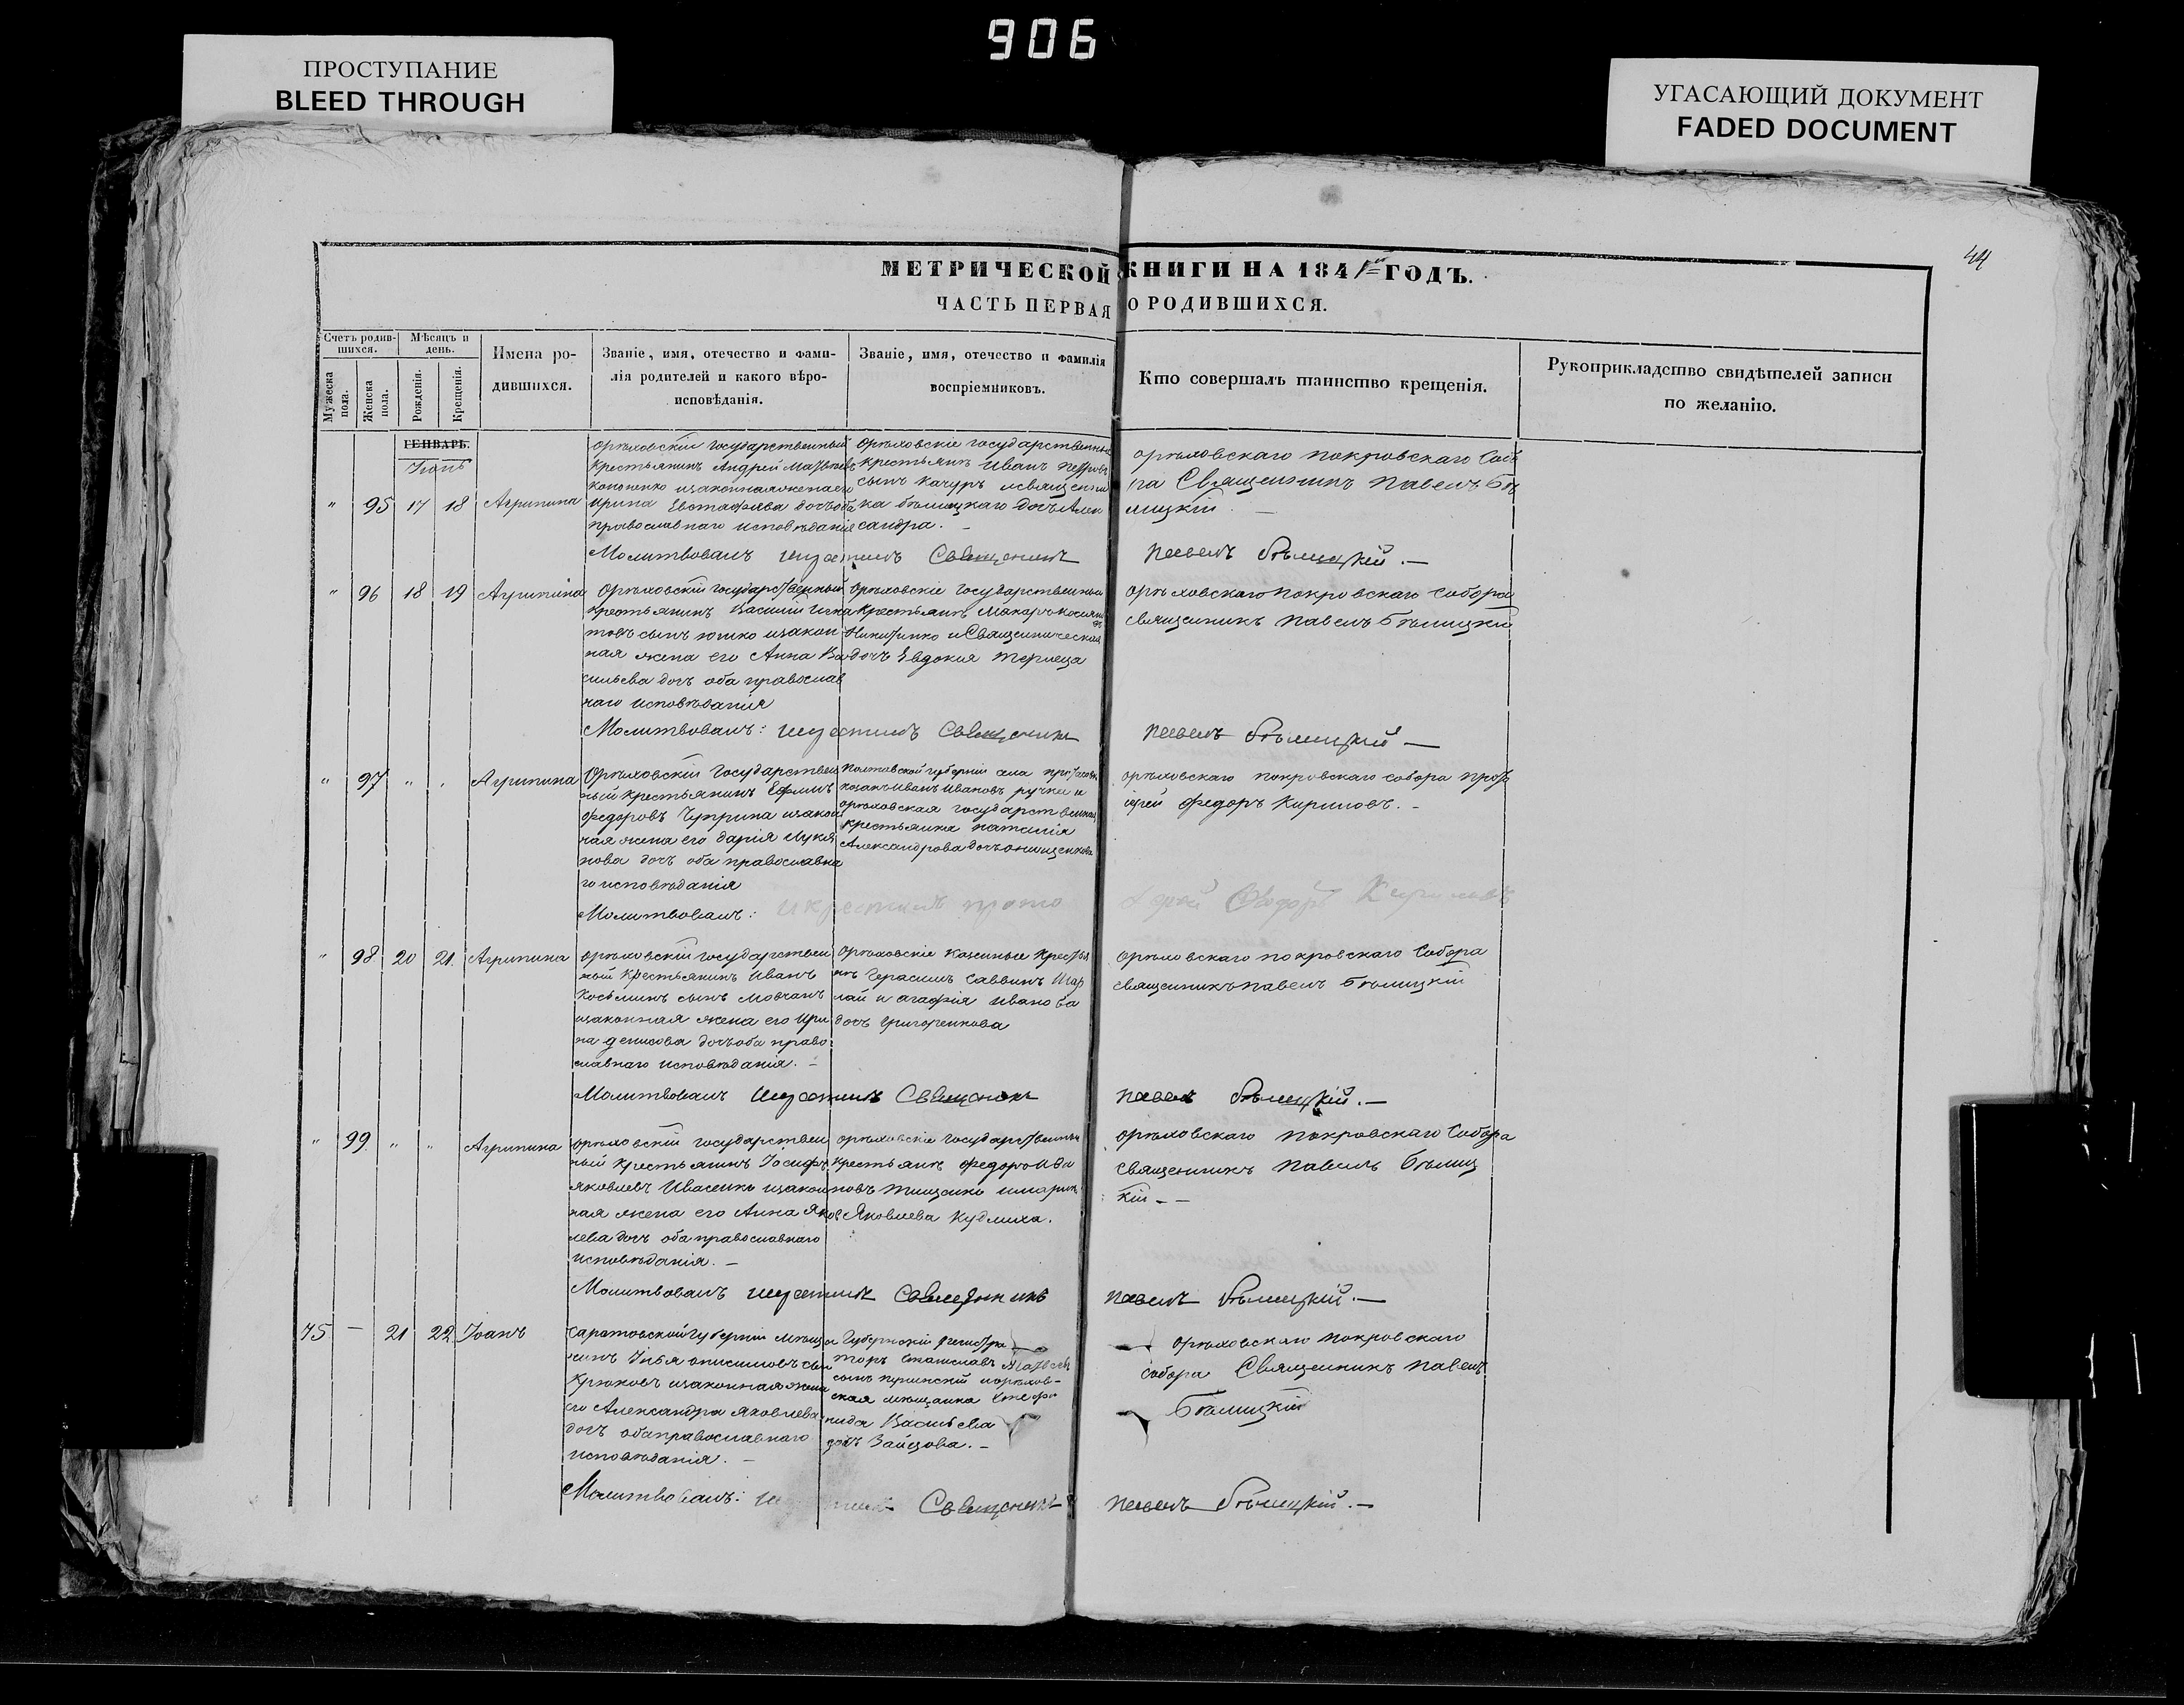 906
ПРОСТУПАНИЕ
BLEED THROUGH
УГАСАЮЩИЙ ДОКУМЕНТ
FADED DOCUMENT
44
МЕТРИЧЕСКОЙ КНИГИ НА 184 ГОДЪ.
ЧАСТЬ ПЕРВАЯ О РОДИВШИХСЯ.
Счетъ родив-
шихся.
Мужеска
пола.
Женска
пола.
Мѣсяцъ и
день.
Рожденія.
Крещенія.
Имена ро-
дившихся.
Званіе, имя, отечество и фами-
лія родителей и какого вѣро-
исповѣданія.
Званіе, имя, отечество и фамилія
воспріемниковъ.
Кто совершалъ таинство крещенія.
Рукоприкладство свидѣтелей записи
по желанію.
ГЕНВАРЬ.
Іюнь
" 95 17 18 Агрипина
Орѣховскій государственный
крестьянинъ Андрей Матвѣевъ
кононенко изаконная жена его
Ирина Евстафіева дочь оба
православнаго исповѣданія
Орѣховскіе государственные
крестьянъ Иванъ Петровъ
сынъ Качуръ исвященни
ка бѣлицкаго дочь Алек
сандра. –
орѣховскаго покровскаго Собо
ра Священникъ Павелъ Бѣ
лицкій. –
Молитвовалъ икрестилъ Священникъ Павелъ Бѣлицкій. –
" 96 18 19 Агрипина
Орѣховскій государственный
крестьянинъ Василій Игна
товъ сынъ юшко изакон
ная жена его Анна Ва
сильева дочь оба православ
наго исповѣданія
Орѣховскіе государственные
крестьянъ Макаръ
Никитенко и Священническая
дочь Евдокія
орѣховскаго покровскаго собора
священникъ Павелъ Бѣлицкій
Молитвовалъ: икрестилъ Священникъ Павелъ Бѣлицкій –
" 97 " " Агрипина
Орѣховскій государствен
ный крестьянинъ Ефимъ
Федоровъ Чуприна изакон
ная жена его дарія Лукя
нова дочь оба православна
го исповѣданія
Полтавской губерніи села
козакъ Иванъ Ивановъ ручка и
орѣховская государственная
крестьянка наталія
Александрова дочь онищенкова
орѣховскаго покровскаго собора прото
іерей Федоръ Кириловъ. –
Молитвовалъ: икрестилъ прото іерей Федоръ Кириловъ
" 98 20 21 Агрипина
орѣховскій государствен
ный крестьянинъ Иванъ
Косьминъ сынъ мовчанъ
изаконная жена его Ири
на денисова дочь оба право
славнаго исповѣданія. –
Орѣховскіе казенные крестья
нъ Герасимъ Саввинъ
и агафія Иванова
дочь Григоренкова
орѣховскаго покровскаго Собора
священникъ павелъ Бѣлицкій
Молитвовалъ икрестилъ Священникъ Павелъ Бѣлицкій. –
" 99 " " Агрипина
орѣховскій государствен
ный крестьянинъ Іосифъ
яковлевъ Ивасенко изакон
ная жена его Анна Яков
лева дочь оба православнаго
исповѣданія. –
орѣховскіе государственные
крестьянъ федоръ Ива
новъ тищенко имарія
Яковлева Кудлиха.
орѣховскаго покровскаго Собора
священникъ Павелъ Бѣлиц
кій – –
Молитвовалъ икрестилъ Священникъ Павелъ Бѣлицкій. –
75 – 21 22 Іоанъ
Саратовской губерніи мѣща
нинъ Илья онисимовъ сынъ
Крюковъ изаконная жена
его Александра яковлева
дочь оба православнаго
исповѣданія. –
Губернскій регистра
торъ станиславъ Матвѣевъ
сынъ иорѣхов-
ская мѣщанка Стефа
нида Васильева
дочь Зайцова. –
орѣховскаго покровскаго
собора Священникъ Павелъ
Бѣлицкій
Молитвовалъ: Священникъ Павелъ Бѣлицкій. –